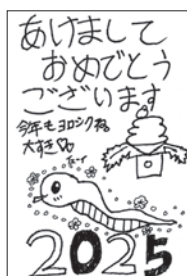 あけまして
おめでとう
ございます
今年もヨロシクね
大すき♡
2025